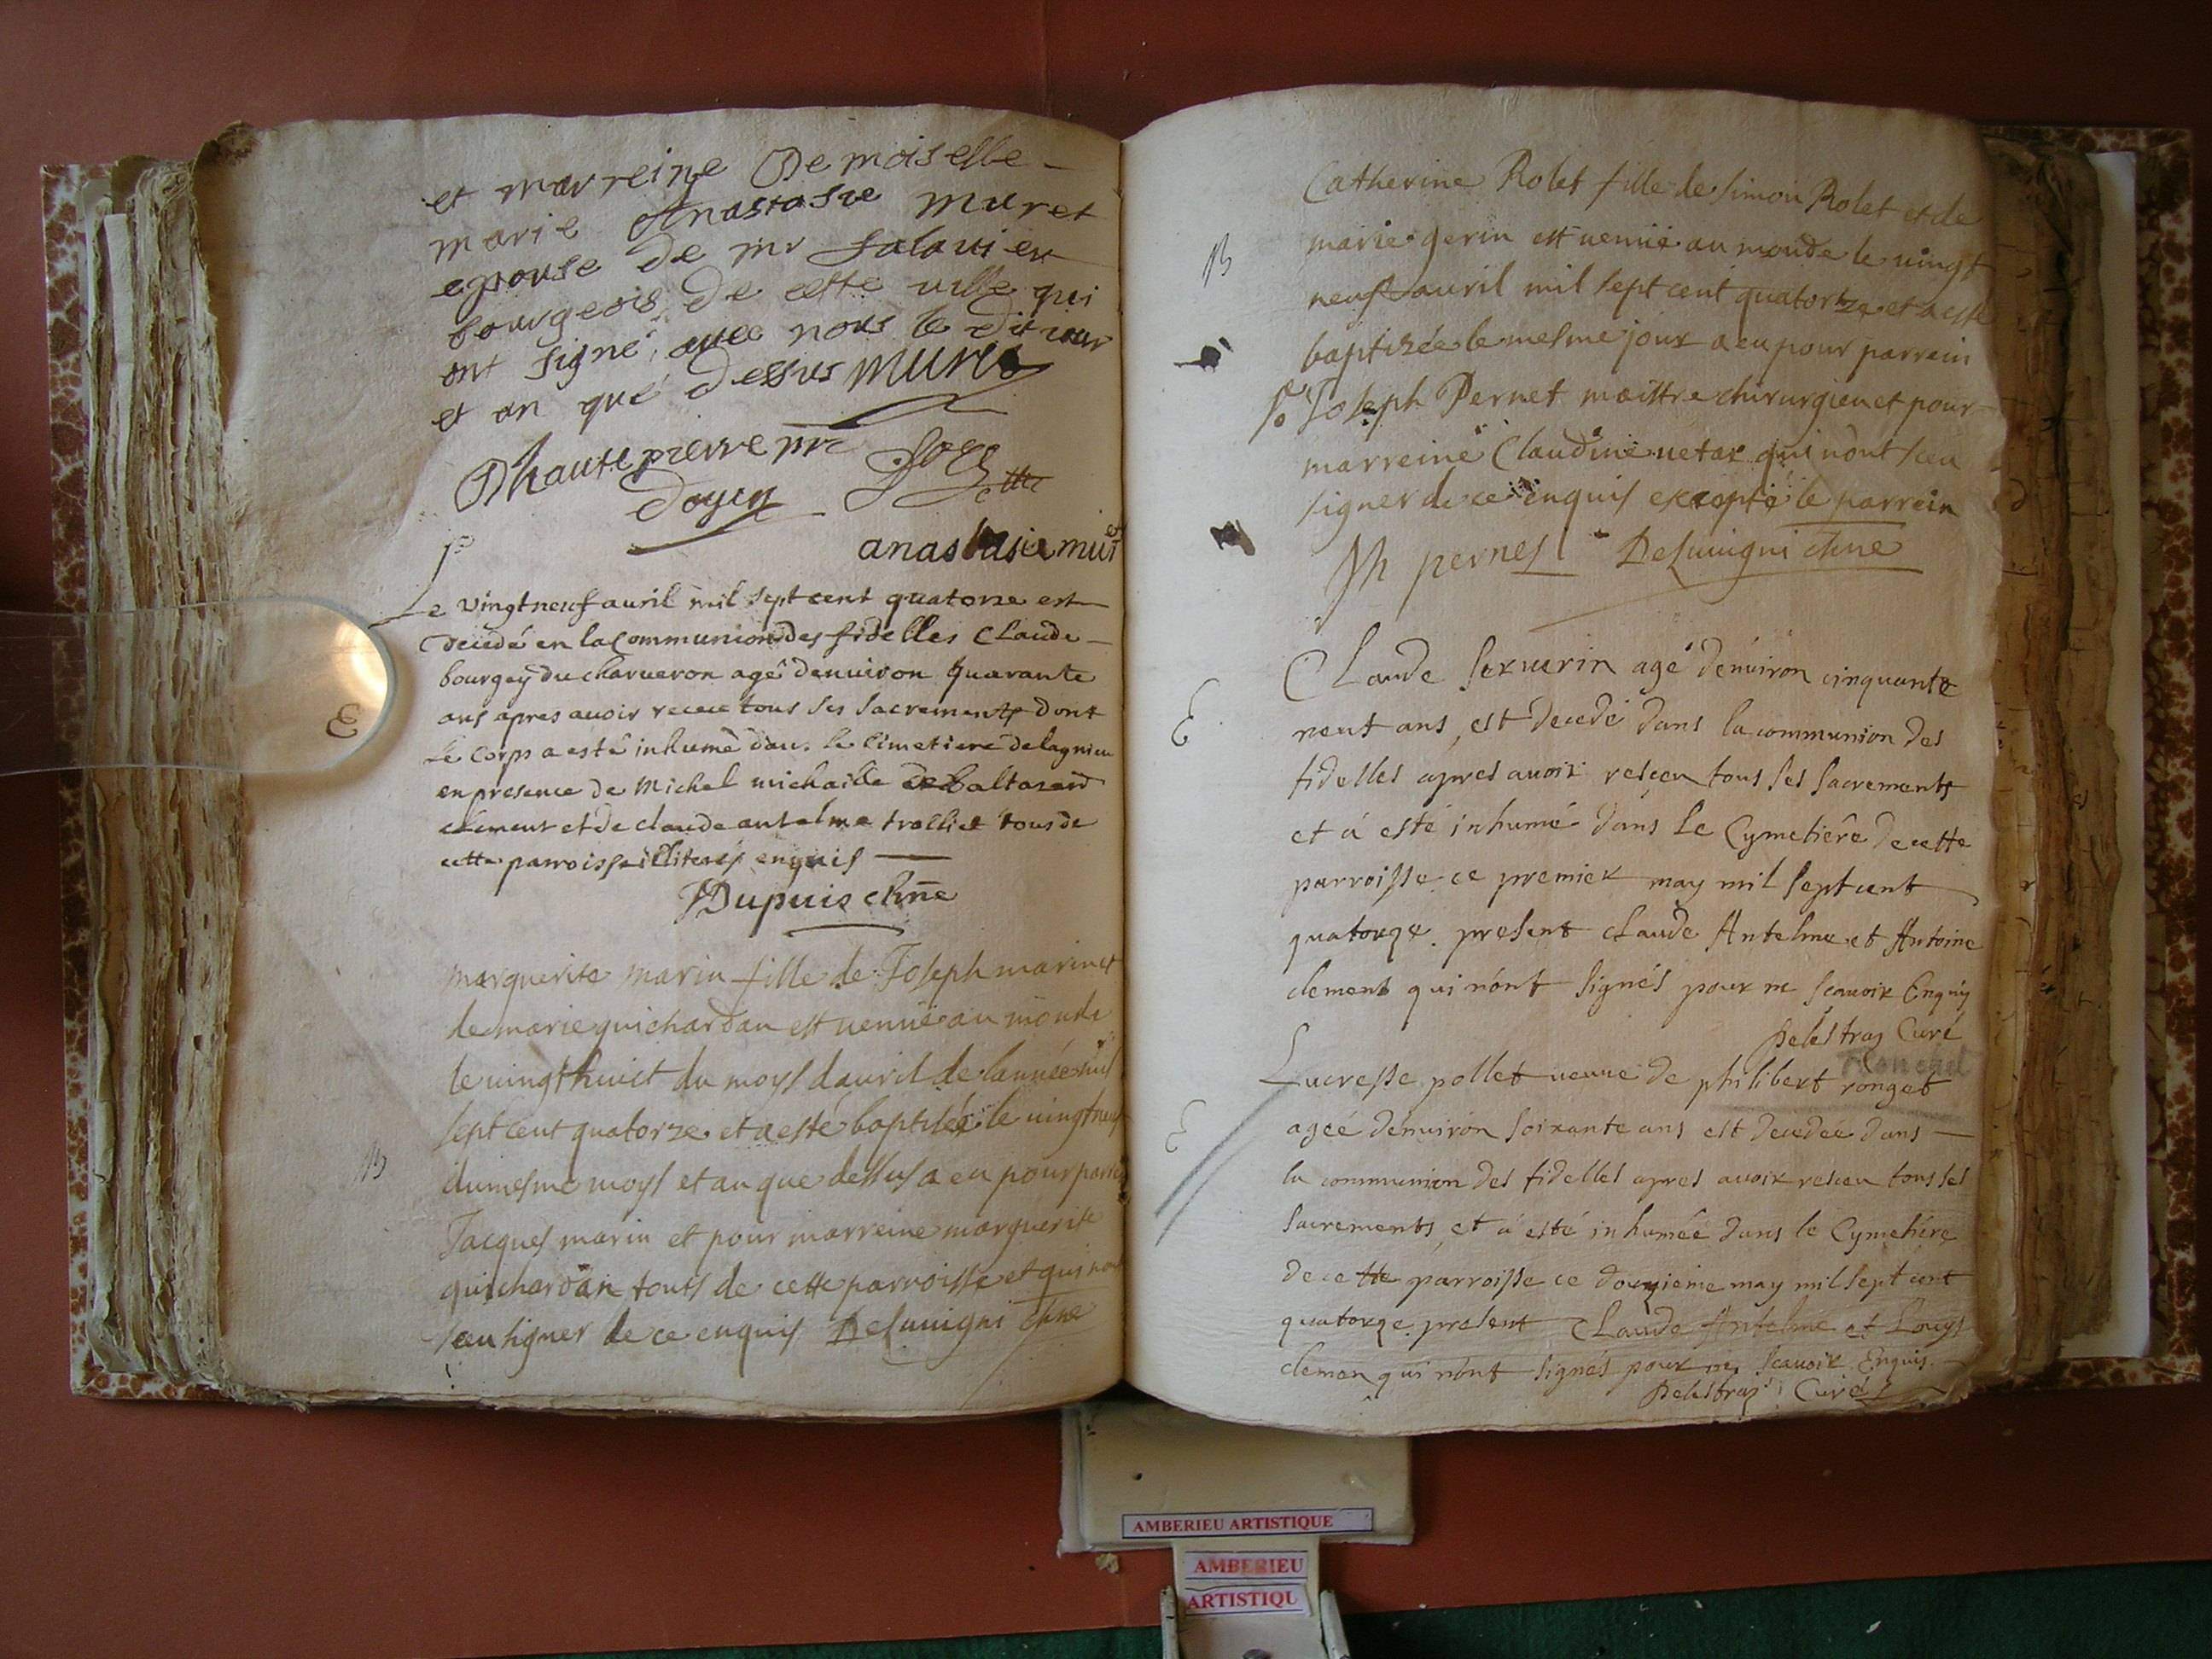 et marreine Demoiselle
marie Anastasie muret
epouse de mr Salavier
bourgeois de cette ville qui
ont signé avec nous le dit iour
et an que dessus Muret
Dhautepierre pre
Doyen
anastasie muret
Le vingtneuf auril mil sept cent quatorze est
decedé en la Communion des fidelles Claude
bourgey du charueron agé denuiron quarante
ans apres auoir receu tous ses sacrements dont
le corps a esté inhumé dans le Cimetiere de lagnieu
en presence de Michel michaille de Baltazard
clement et de claude antelme trolliet tous de
cette parroisse illiterés enquis
E
JDupuis chne
marguerite marin fille de Joseph marin et
de marie guichardan est uenüe au monde
le uingt huict du moys dauril de lannée mil
sept cent quatorze et a esté baptisée le uingt neuf
du mesme moys et an que dessus a eu pour parrein
B
Jacques marin et pour marreine marguerite
guichardan touts de cette parroisse et qui nont
sceu signer de ce enquis Deluuigni chne
Catherine Rolet fille de simon Rolet et de
marie gerin est uenüe au monde le uingt
B
neuf auril mil sept cent quatortze et a esté
baptizée le mesme jour a eu pour parrein
sr Joseph Pernet maistre chirurgien et pour
marreine Claudine uetar qui nont sceu
signer de ce enquis excepté le parrein
Jh pernet Deluuigni chne
Claude Sexuerin agé denuiron cinquante
E
neuf ans, est decedé dans la communion des
fidelles apres auoir resceu tous ses sacrements
et á esté inhumé dans le Cymetiêre de cette
parroisse ce premier may mil sept cent
quatorze. present claude Antelme et Antoine
clement qui nónt signés pour ne scauoir Enquis
Delestraz Curé
Lucresse pollet ueuue de philibert ronget
E
agée denuiron soixante ans est decedée dans
la communion des fidelles apres auoir resceu tous ses
sacrements, et á esté inhumée dans le Cymetiére
de cette parroisse ce douzieme may mil sept cent
quatorze. present Claude Antelme et Louys
cleman qui nónt signés pour ne scauoir Enquis.
Delestraz Curé
AMBERIEU ARTISTIQUE
AMBERIEU
ARTISTIQU